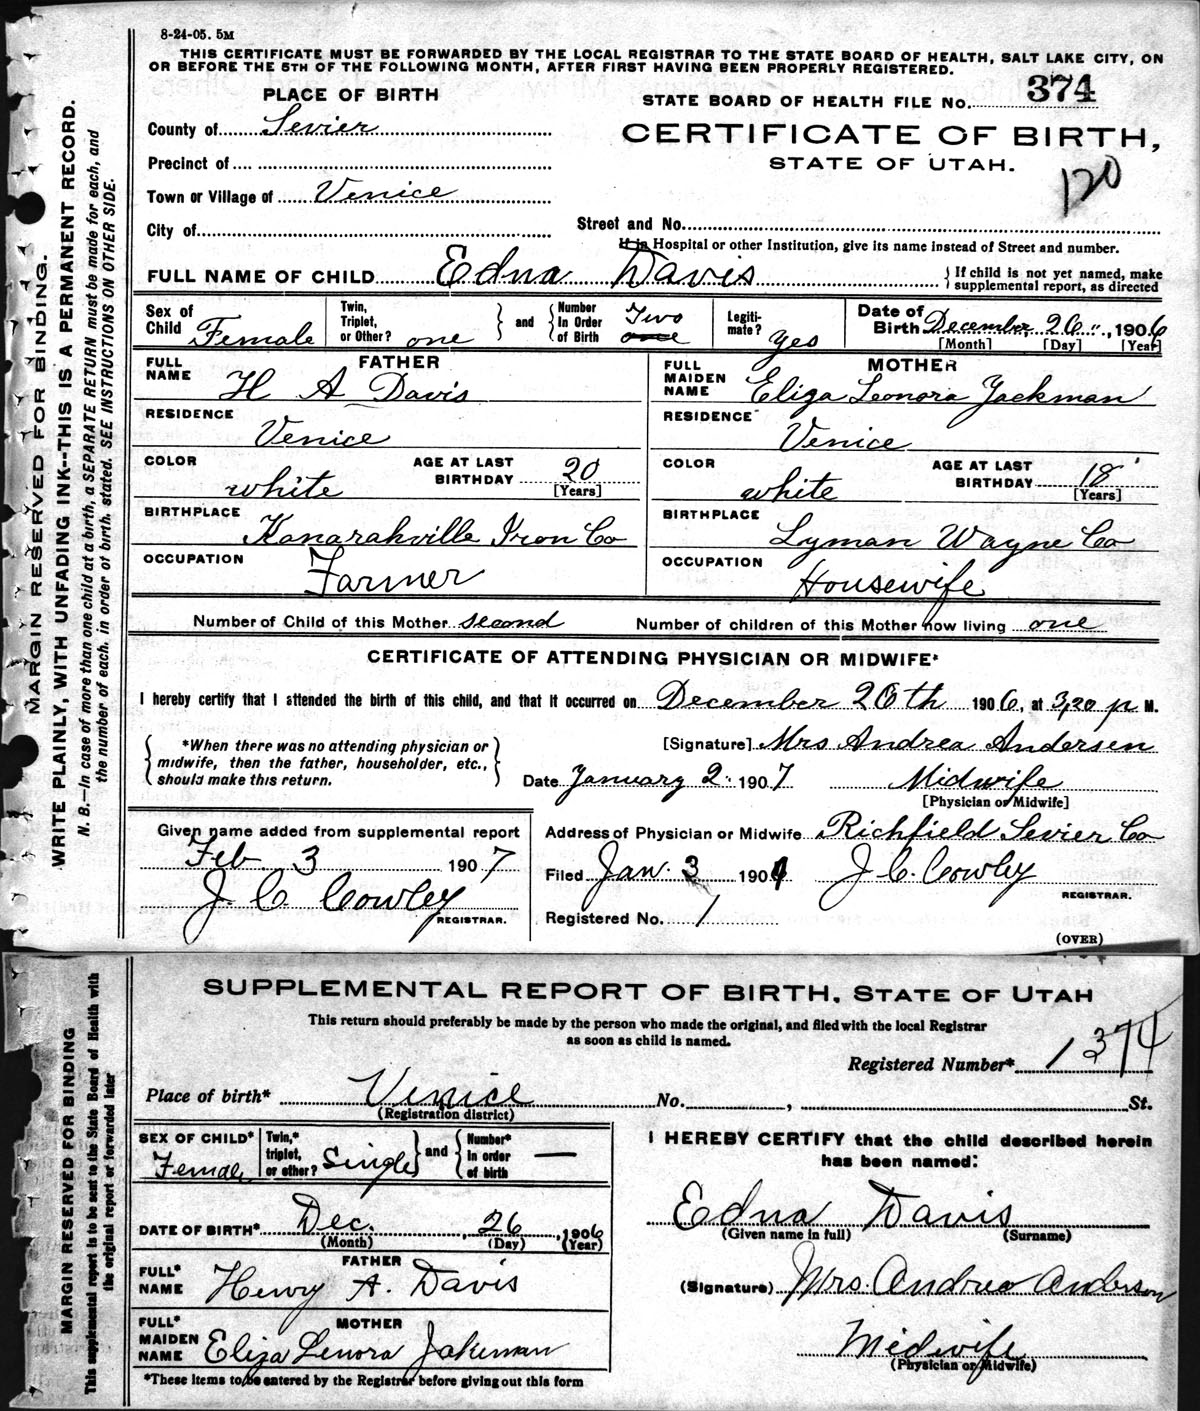 8-24-05. 5M
THIS CERTIFICATE MUST BE FORWARDED BY THE LOCAL REGISTRAR TO THE STATE BOARD OF HEALTH, SALT LAKE CITY, ON
OR BEFORE THE 5TH OF THE FOLLOWING MONTH, AFTER FIRST HAVING BEEN PROPERLY REGISTERED.
PLACE OF BIRTH
STATE BOARD OF HEALTH FILE No. 374
County of Sevier
CERTIFICATE OF BIRTH,
Precinct of
STATE OF UTAH.
120
Town or Village of Venice
City of
Street and No.
If in Hospital or other Institution, give its name instead of Street and number.
FULL NAME OF CHILD Edna Davis
If child is not yet named, make
supplemental report, as directed
Sex of Child Female
Twin, Triplet, or Other? one
and
Number In Order of Birth Two one
Legitimate? yes
Date of Birth December 26, 1906
[Month] [Day] [Year]
FATHER
FULL NAME H A Davis
RESIDENCE Venice
COLOR white
AGE AT LAST BIRTHDAY 20
[Years]
BIRTHPLACE Kanarahville Iron Co
OCCUPATION Farmer
MOTHER
FULL MAIDEN NAME Eliza Leonora Jackman
RESIDENCE Venice
COLOR white
AGE AT LAST BIRTHDAY 18
[Years]
BIRTHPLACE Lyman Wayne Co
OCCUPATION Housewife
Number of Child of this Mother second
Number of children of this Mother now living one
CERTIFICATE OF ATTENDING PHYSICIAN OR MIDWIFE*
I hereby certify that I attended the birth of this child, and that it occurred on December 26th 1906, at 3,20 p M.
*When there was no attending physician or
midwife, then the father, householder, etc.,
should make this return.
[Signature] Mrs Andrea Andersen
Date January 2 1907
Midwife
[Physician or Midwife]
Given name added from supplemental report
Feb 3 1907
J. C. Cowley
REGISTRAR.
Address of Physician or Midwife Richfield Sevier Co
Filed Jan. 3 190
J. C. Cowley
REGISTRAR.
Registered No. 1
(OVER)
MARGIN RESERVED FOR BINDING.
WRITE PLAINLY, WITH UNFADING INK--THIS IS A PERMANENT RECORD.
N. B.--In case of more than one child at a birth, a SEPARATE RETURN must be made for each, and
the number of each, in order of birth, stated. SEE INSTRUCTIONS ON OTHER SIDE.
SUPPLEMENTAL REPORT OF BIRTH, STATE OF UTAH
This return should preferably be made by the person who made the original, and filed with the local Registrar
as soon as child is named.
Registered Number* 1 374
Place of birth* Venice No. , St.
(Registration district)
SEX OF CHILD* Female
Twin,* triplet, or other? Single
and
Number* In order of birth —
DATE OF BIRTH* Dec. , 26 , 1906
(Month) (Day) (Year)
FATHER
FULL* NAME Henry A. Davis
MOTHER
FULL* MAIDEN NAME Eliza Lenora Jakeman
*These items to be entered by the Registrar before giving out this form
I HEREBY CERTIFY that the child described herein
has been named:
Edna Davis
(Given name in full) (Surname)
(Signature) Mrs. Andrea Anderson
Midwife
(Physician or Midwife)
MARGIN RESERVED FOR BINDING
This supplemental report is to be sent to the State Board of Health with
the original report or forwarded later